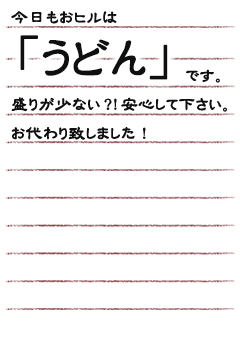 今日もおヒルは
「うどん」です。
盛りが少ない?!安心して下さい。
お代わり致しました！